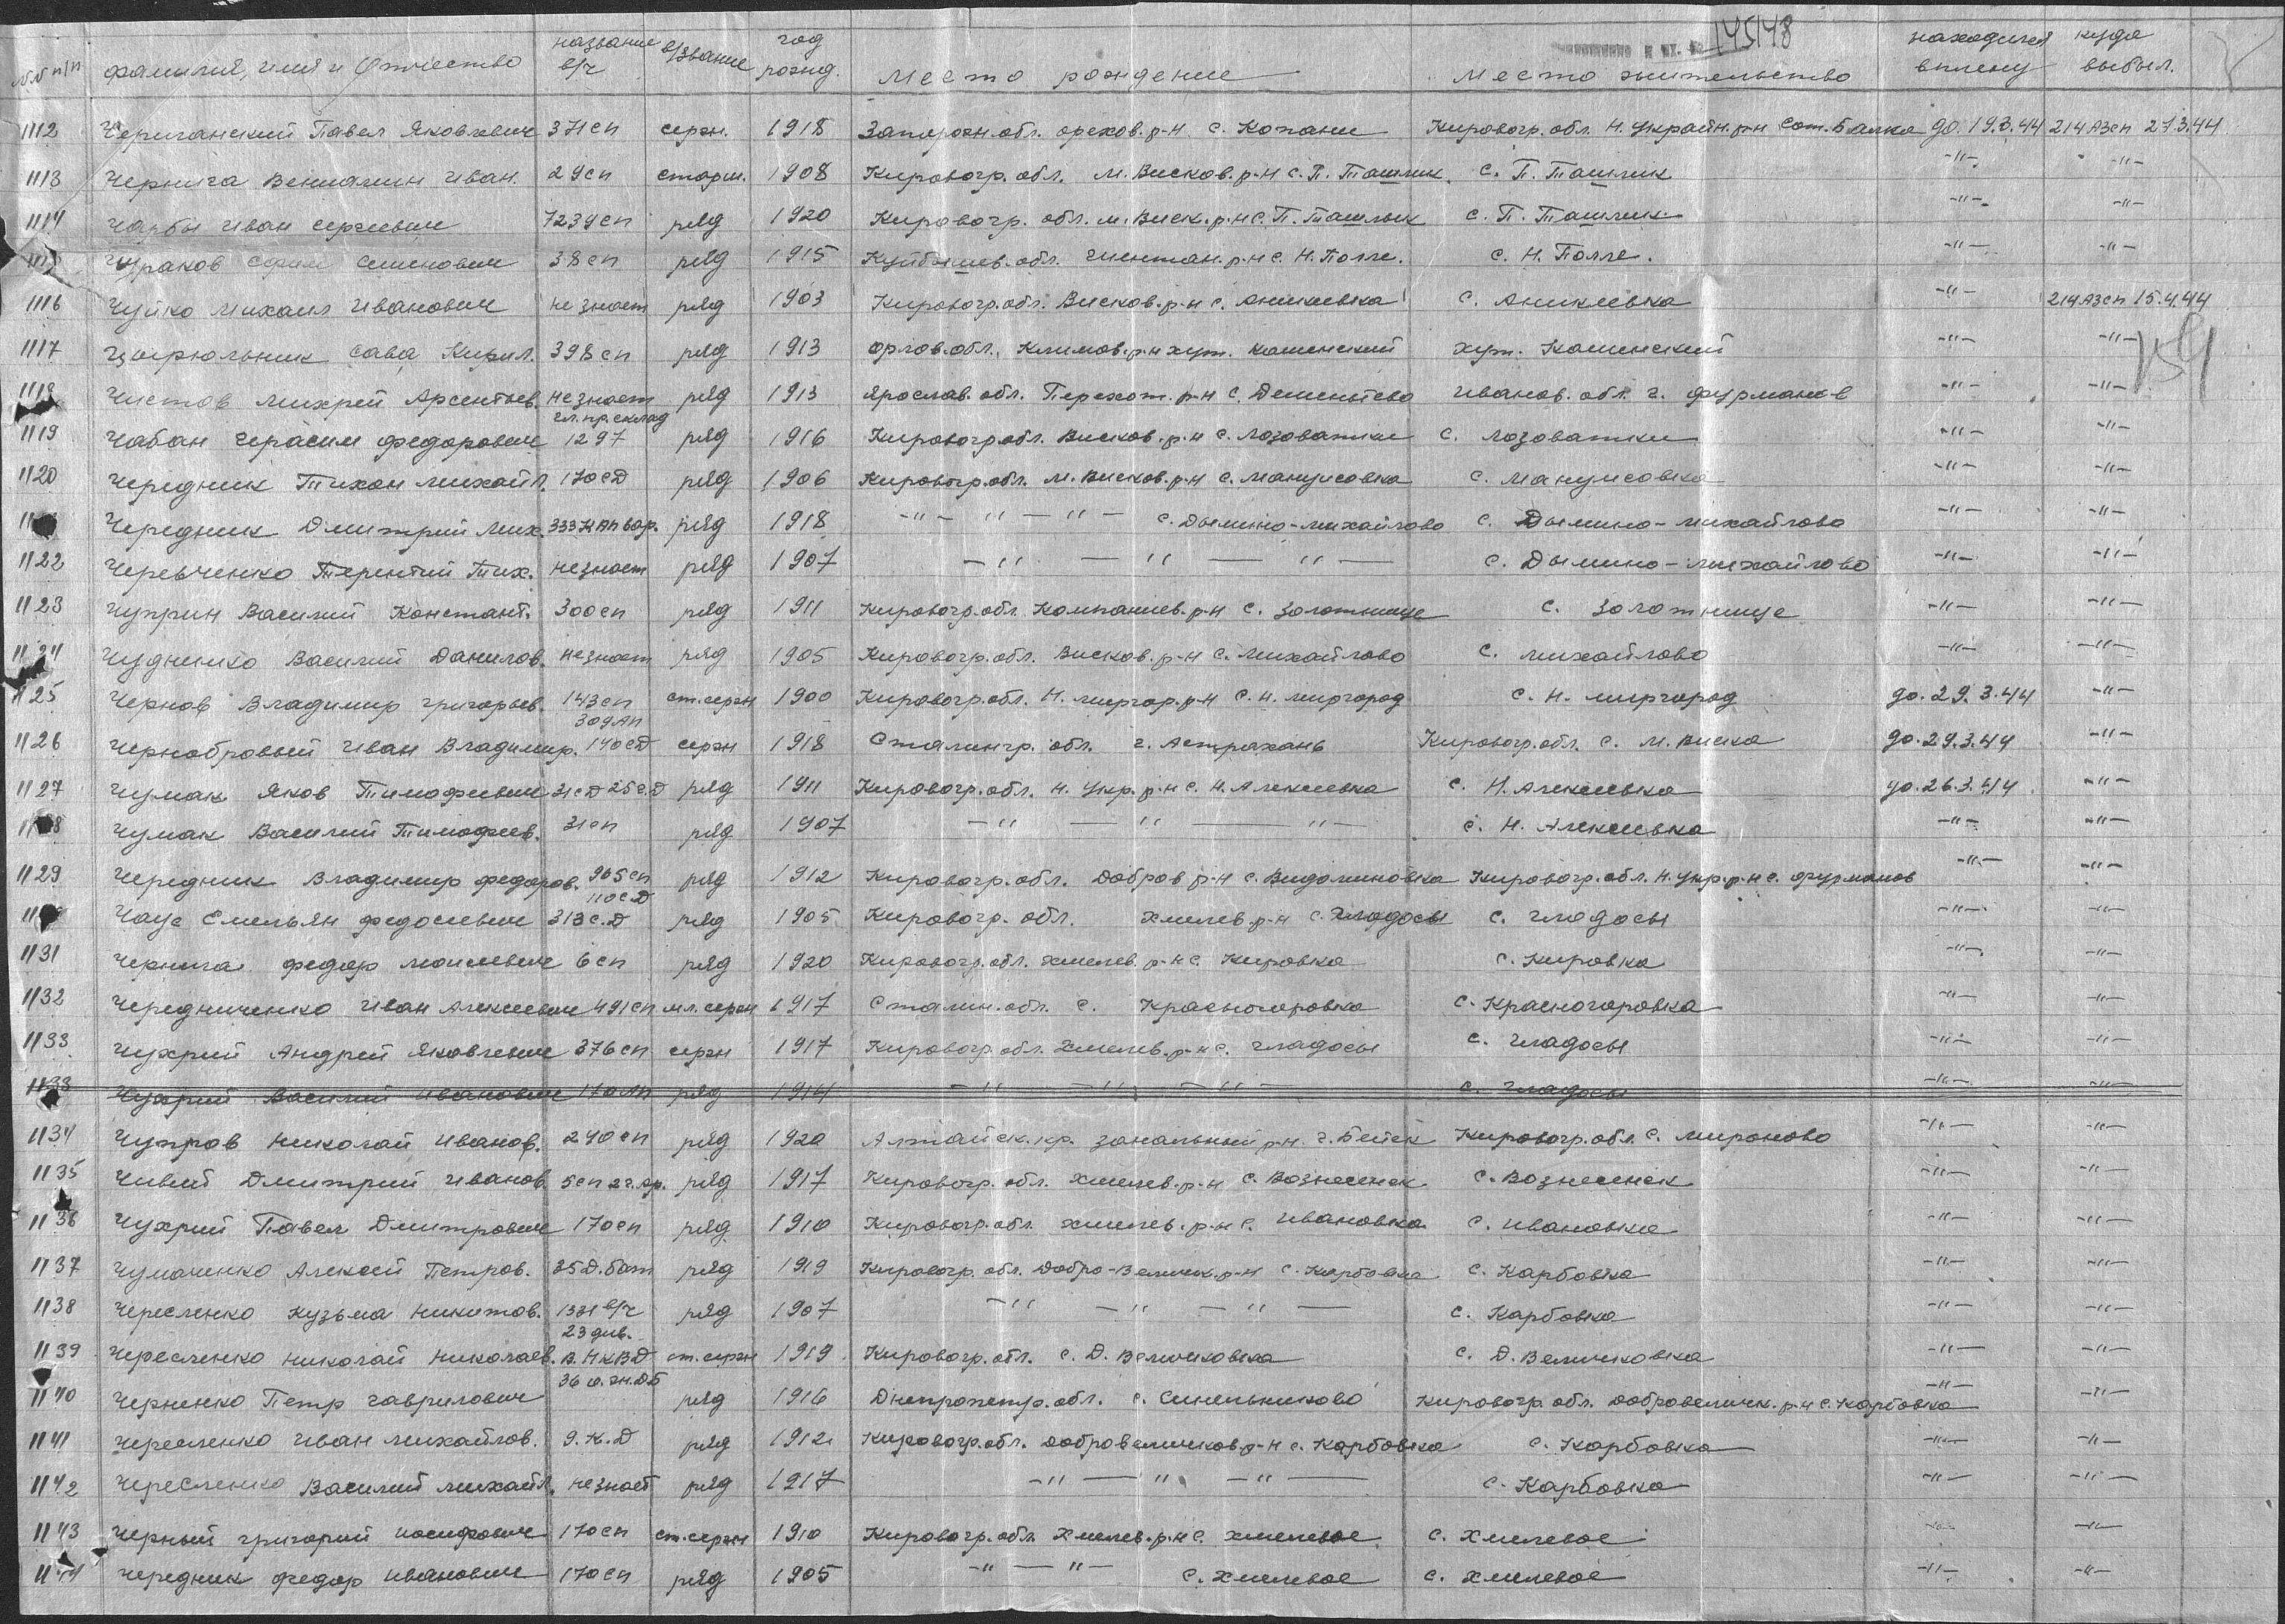 145148
№№ п/п фамилия, имя и Отчество название в/ч в/звание год рожд. Место рождение Место жительство находился в плену куда выбыл.
1112 Павел Яковлевич 371 сп сержн. 1918 Запорожн. обл. орехов. р-н с. Копани Кировогр. обл. Н. Украйн. р-н Сот. Балка до. 19.3.44 214 АЗСП 27.3.44
1113 Чернига Вениамин Иван. 29 сп старш. 1908 Кировогр. обл. М. Висков. р-н с. П. Ташлик. с. П. Ташлик -"- -"-
1114 Чарбы Иван Сергеевич 1239 сп ряд 1920 Кировогр. обл. м. Виск. р-н с. П. Ташлык с. П. Ташлик -"- -"-
1115 Семенович 38 сп ряд 1915 Куйбышев. обл. р-н с. Н. Полле. с. Н. Полле. -"- -"-
1116 Чуйко Михаил Иванович не знает ряд 1903 Кировогр. обл. Висков. р-н с. Аникиевка с. Аникиевка -"- 214 АЗСП 15.4.44
1117 Цырюльник Сава Кирил. 398 сп ряд 1913 Орлов. обл. Климов. р-н хут. Каменский хут. Каменский -"- -"-
1118 Чистов Арсентьев. не знает ряд 1913 Ярослав. обл. р-н с. Деменьтево Иванов. обл. г. Фурманов -"- -"-
гл. пр. склад
1119 Чабан Герасим Федорович 1297 ряд 1916 Кировогр. обл. Висков. р-н с. Лозоватки с. Лозоватки -"- -"-
1120 Чередник Тихон Михайл. 170 сД ряд 1906 Кировогр. обл. М. Висков. р-н с. Мануисовка с. Мануисовка -"- -"-
Чередник Дмитрий Мих. 333 ряд 1918 -"- -"- -"- с. Дымино-Михайлово с. Дымино-Михайлово -"- -"-
1122 Черевченко Терентий Тих. не знает ряд 1907 -"- -"- -"- с. Дымино-Михайлово -"- -"-
1123 Чуприн Василий Констант. 300 сп ряд 1911 Кировогр. обл. Компаниев. р-н с. Золотнище с. Золотнище -"- -"-
1124 Чудненко Василий Данилов. не знает ряд 1905 Кировогр. обл. Висков. р-н с. Михайлово с. Михайлово -"- -"-
1125 Чернов Владимир Григорьев. 143 сп ст. сержн 1900 Кировогр. обл. Н. Миргор. р-н с. Н. Миргород с. Н. Миргород до. 29.3.44 -"-
309 АП
1126 Чернобровый Иван Владимир. 140 сД сержн 1918 Сталингр. обл. г. Астрахань Кировогр. обл. с. М. Виска до. 29.3.44 -"-
1127 Чумак Яков Тимофеевич 31 сД 25 с.Д ряд 1911 Кировогр. обл. Н. Укр. р-н с. Н. Алексеевка с. Н. Алексеевка до. 26.3.44 -"-
Чумак Василий Тимофеев. 31 сп ряд 1907 -"- -"- -"- с. Н. Алексеевка -"- -"-
1129 Чередник Владимир Федоров. 905 сп ряд 1912 Кировогр. обл. Добров р-н с. Видолиновка Кировогр. обл. Н. Укр. р-н с. Фурманов -"- -"-
110 с.Д
Чаус Емельян Федосеевич 313 с.Д ряд 1905 Кировогр. обл. Хмелев. р-н с. Гладосы с. Гладосы -"- -"-
1131 Чернега Федор Моисеевич 6 сп ряд 1920 Кировогр. обл. Хмелев. р-н с. Кировка с. Кировка -"- -"-
1132 Чередниченко Иван Алексеевич 491 сп мл. сержн 1917 Сталин. обл. с. Красногоровка с. Красногоровка -"- -"-
1133 Чухрий Андрей Яковлевич 376 сп сержн 1917 Кировогр. обл. Хмелев. р-н с. Гладосы с. Гладосы -"- -"-
1133 Чухрий Василий Иванович 170 АП ряд 1914 -"- -"- -"- с. Гладосы -"- -"-
1134 Чупров Николай Иванов. 240 сп ряд 1920 Алтайск. кр. Зональный р-н. г. Бейск Кировогр. обл. с. Мироново -"- -"-
1135 Дмитрий Иванов 5 сп ряд 1917 Кировогр. обл. Хмелев. р-н с. Вознесенск с. Вознесенск -"- -"-
1136 Чухрий Павел Дмитрович 170 сп ряд 1910 Кировогр. обл. Хмелев. р-н с. Ивановка с. Ивановка -"- -"-
1137 Чумаченко Алексей Петров. 35 Д. бат ряд 1919 Кировогр. обл. Добро-Величк. р-н с. Карбовка с. Карбовка -"- -"-
1138 Чересленко Кузьма Никитов. 1331 в/ч ряд 1907 -"- -"- -"- с. Карбовка -"- -"-
23 див.
1139 Чересленко Николай Николаев. В. НКВД ст. сержн 1919 Кировогр. обл. с. Д. Величковка с. Д. Величковка -"- -"-
1140 Черненко Петр Гаврилович 36 ряд 1916 Днепропетр. обл. с. Синельниково Кировогр. обл. Добровеличк. р-н с. Карбовка -"- -"-
1141 Чересленко Иван Михайлов. 9. К. Д ряд 1912 Кировогр. обл. Добровеличков. р-н с. Карбовка с. Карбовка -"- -"-
1142 Чересленко Василий Михайл. не знает ряд 1917 -"- -"- -"- с. Карбовка -"- -"-
1143 Черный Григорий Иосифович 170 сп ст. сержн 1910 Кировогр. обл. Хмелев. р-н с. Хмелевое с. Хмелевое -"- -"-
1144 Чередник Федор Иванович 170 сп ряд 1905 -"- -"- с. Хмелевое с. Хмелевое -"- -"-